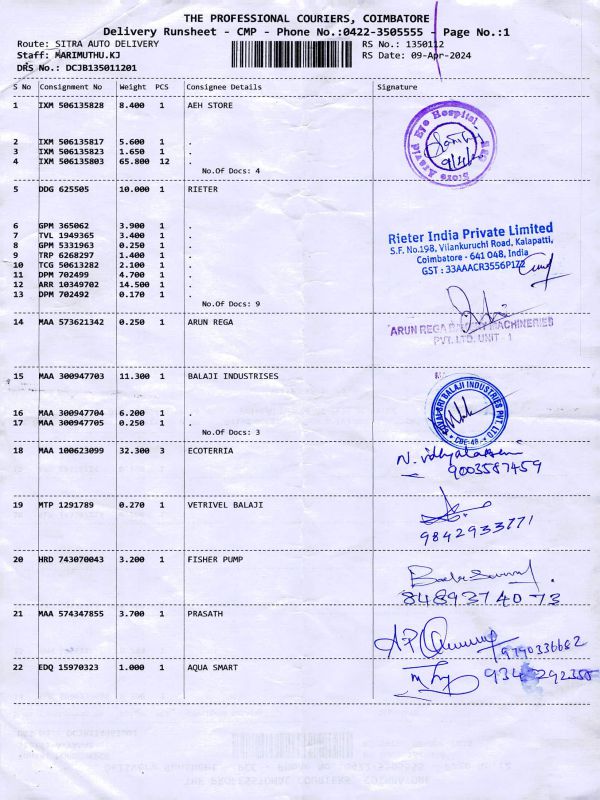 THE PROFESSIONAL COURIERS, COIMBATORE
Delivery Runsheet - CMP - Phone No.:0422-3505555 - Page No.:1
Route: SITRA AUTO DELIVERY RS No.: 1350112
Staff: MARIMUTHU.KJ RS Date: 09-Apr-2024
DRS No.: DCJB135011201
S No Consignment No Weight PCS Consignee Details Signature
1 IXM 506135828 8.400 1 AEH STORE
Aravid Eye Hospital
Store
9/4/
2 IXM 506135817 5.600 1 .
3 IXM 506135823 1.650 1 .
4 IXM 506135803 65.800 12 .
No.Of Docs: 4
5 DDG 625505 10.000 1 RIETER
6 GPM 365062 3.900 1 .
7 TVL 1949365 3.400 1 .
8 GPM 5331963 0.250 1 .
9 TRP 6268297 1.400 1 .
10 TCG 50613282 2.100 1 .
11 DPM 702499 4.700 1 .
12 ARR 10349702 14.500 1 .
13 DPM 702492 0.170 1 .
No.Of Docs: 9
Rieter India Private Limited
S.F. No.198, Vilankuruchi Road, Kalapatti,
Coimbatore - 641 048, India
GST : 33AAACR3556P1ZZ
14 MAA 573621342 0.250 1 ARUN REGA
ARUN REGA MACHINERIES
PVT. LTD. UNIT - 1
15 MAA 300947703 11.300 1 BALAJI INDUSTRISES
BALAJI INDUSTRIES PVT LTD
CBE-48
16 MAA 300947704 6.200 1 .
17 MAA 300947705 0.250 1 .
No.Of Docs: 3
18 MAA 100623099 32.300 3 ECOTERRIA
N. Vidhyalakshmi
9003587459
19 MTP 1291789 0.270 1 VETRIVEL BALAJI
9842933771
20 HRD 743070043 3.200 1 FISHER PUMP
8489374073
21 MAA 574347855 3.700 1 PRASATH
9790336682
22 EDQ 15970323 1.000 1 AQUA SMART